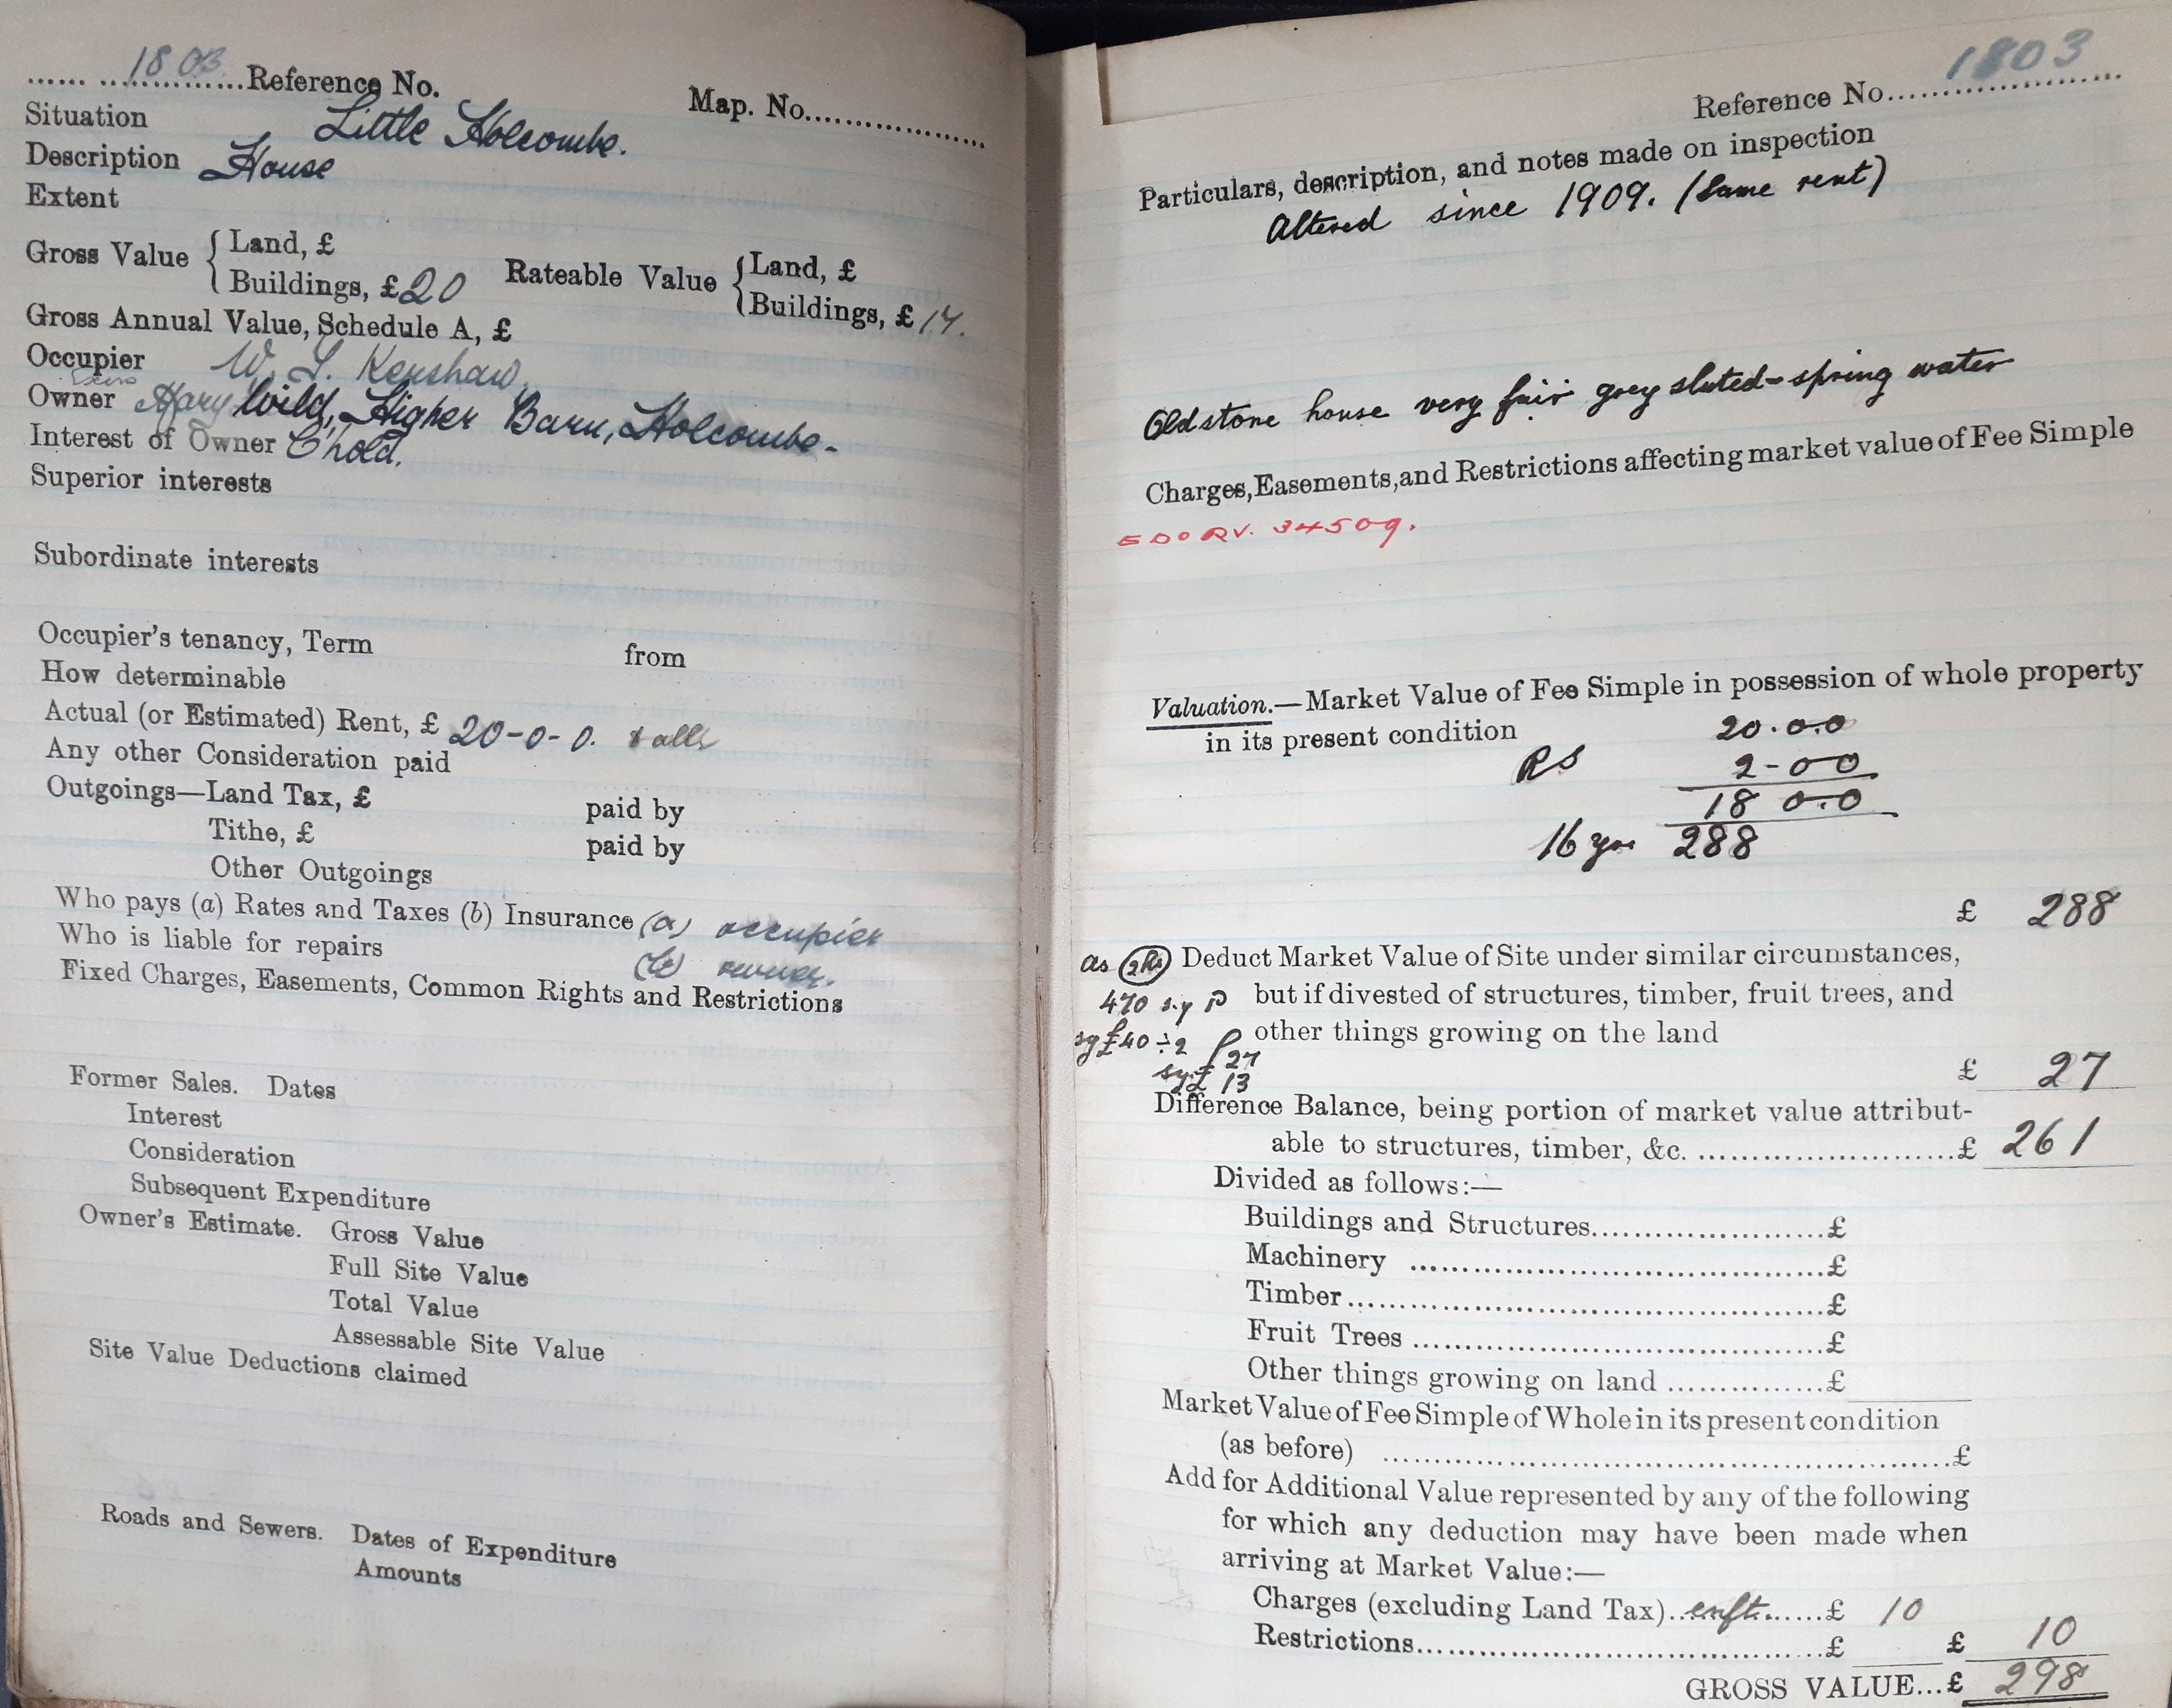 ...... ...1803...Reference No.
Map. No..................
Situation Little Holcombe.
Description House
Extent
Gross Value { Land, £
Buildings, £ 20
Rateable Value { Land, £
Buildings, £ 17.
Gross Annual Value, Schedule A, £
Occupier W. Kershaw
Exors
Owner Mary Wild, Higher Barn, Holcombe.
Interest of Owner C'hold.
Superior interests
Subordinate interests
Occupier's tenancy, Term from
How determinable
Actual (or Estimated) Rent, £ 20-0-0.
Any other Consideration paid
Outgoings—Land Tax, £ paid by
Tithe, £ paid by
Other Outgoings
Who pays (a) Rates and Taxes (b) Insurance (a) occupier
Who is liable for repairs (b) owner.
Fixed Charges, Easements, Common Rights and Restrictions
Former Sales. Dates
Interest
Consideration
Subsequent Expenditure
Owner's Estimate. Gross Value
Full Site Value
Total Value
Assessable Site Value
Site Value Deductions claimed
Roads and Sewers. Dates of Expenditure
Amounts
Reference No. 1803
Particulars, description, and notes made on inspection
Altered since 1909. (Same rent)
Old stone house very fair grey slated - spring water
Charges, Easements, and Restrictions affecting market value of Fee Simple
EDO RV. 34509.
Valuation.—Market Value of Fee Simple in possession of whole property
in its present condition 20.0.0
RS 2-00
18 0.0
16 yrs 288
£ 288
as Deduct Market Value of Site under similar circumstances,
470 s.y but if divested of structures, timber, fruit trees, and
£40 ÷2 other things growing on the land
27
13
£ 27
Difference Balance, being portion of market value attribut-
able to structures, timber, &c. ........................£ 261
Divided as follows:—
Buildings and Structures......................£
Machinery ......................................£
Timber............................................£
Fruit Trees ......................................£
Other things growing on land ..............£
Market Value of Fee Simple of Whole in its present condition
(as before) ..................................................£
Add for Additional Value represented by any of the following
for which any deduction may have been made when
arriving at Market Value:—
Charges (excluding Land Tax)..enft......£ 10
Restrictions....................................£ £ 10
GROSS VALUE...£ 298